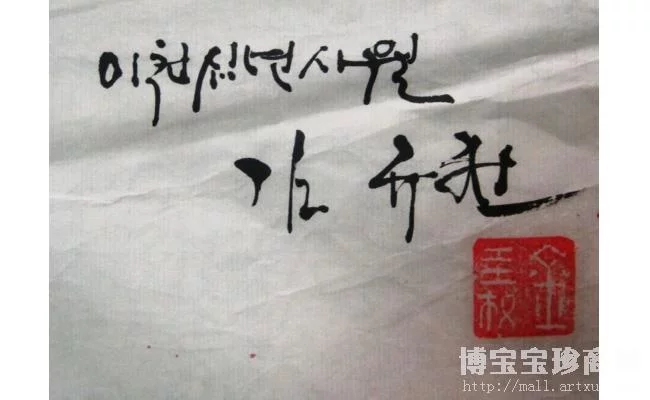 이천십년사월
김 규권
博宝宝珍商
http://mall.artxu